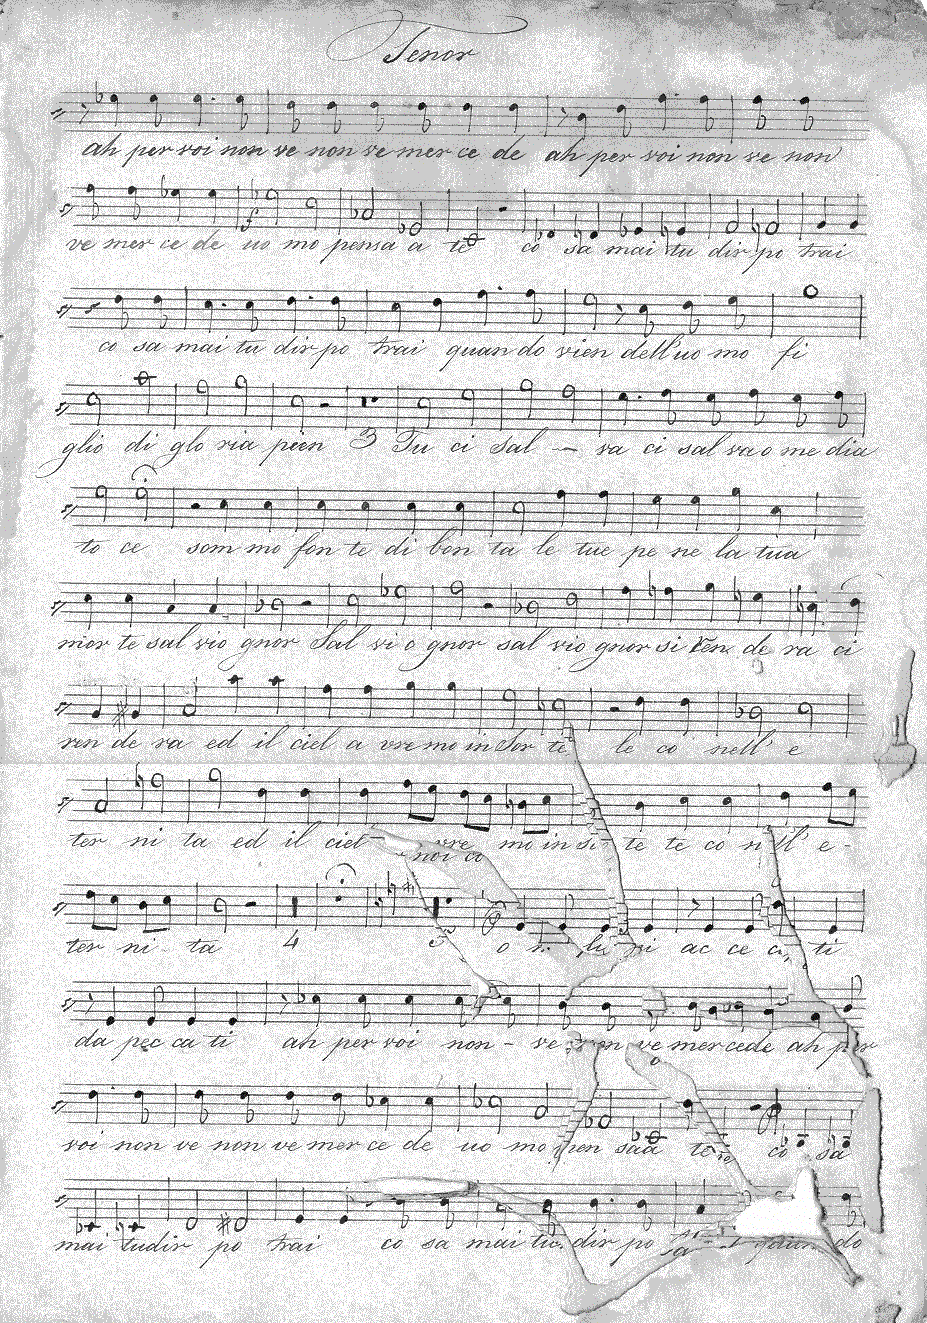 Tenor
ah per voi non ve non ve mer ce de ah per voi non ve non
ve mer ce de uo mo pensa a te co sa mai tu dir po trai
co sa mai tu dir po trai quan do vien dell'uo mo fi
glio di glo ria pien 3 Tu ci sal - va ci sal va o me dia
to ce som mo fon te di bon ta le tue pe ne la tua
mor te sal vio gnor Sal vi o gnor sal vio gnor si ren de ra ci
ren de ra ed il ciel a vre mo in sor te le co nell' e
ter ni ta ed il ciel vre mo in si te te co n ll' e -
noi co
ter ni ta 4 3 o ac ce ca ti
da pec ca ti ah per voi non - ve non ve mercede ah per
voi non ve non ve mer ce de uo mo pen saa te co sa
mai tudir po trai co sa mai tu dir po quan do